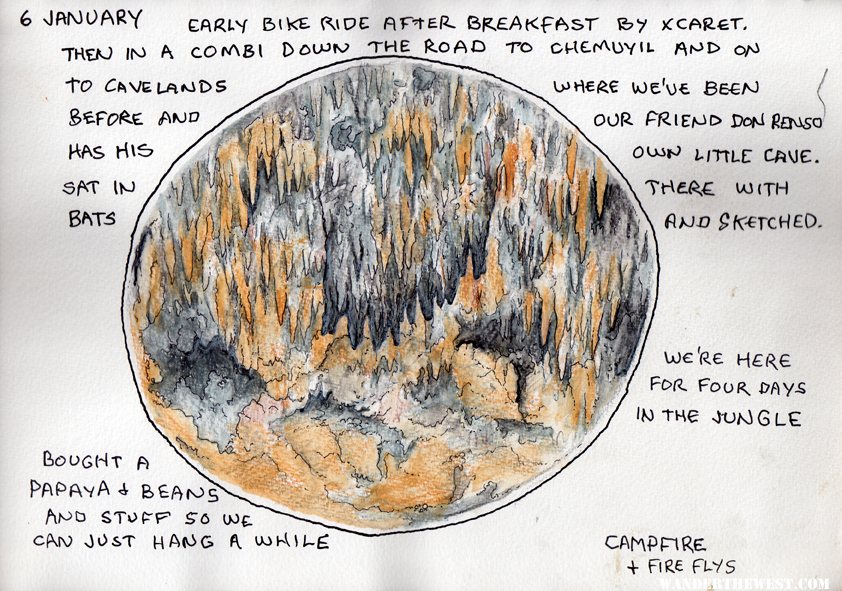 6 JANUARY EARLY BIKE RIDE AFTER BREAKFAST BY XCARET.
THEN IN A COMBI DOWN THE ROAD TO CHEMUYIL AND ON
TO CAVELANDS WHERE WE'VE BEEN
BEFORE AND OUR FRIEND DON RENSO
HAS HIS OWN LITTLE CAVE.
SAT IN THERE WITH
BATS AND SKETCHED.
WE'RE HERE
FOR FOUR DAYS
IN THE JUNGLE
BOUGHT A
PAPAYA + BEANS
AND STUFF SO WE
CAN JUST HANG A WHILE
CAMPFIRE
+ FIRE FLYS
WANDERTHEWEST.COM